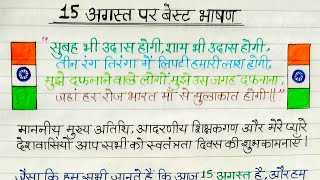 15 अगस्त पर बेस्ट भाषण
"सुबह भी उदास होगी, शाम भी उदास होगी,
तीन रंग तिरंगा में लिपटी हमारी लाश होगी,
मुझे दफनाने वाले लोगों मुझे उस जगह दफनाना,
जहां हर रोज भारत माँ से मुलाकात होगी!!"
माननीय मुख्य अतिथि, आदरणीय शिक्षकगण और मेरे प्यारे
देशवासियों आप सभी को स्वतंत्रता दिवस की शुभकामनाएं।
जैसा कि हम सभी जानते हैं कि आज 15 अगस्त है, और हम